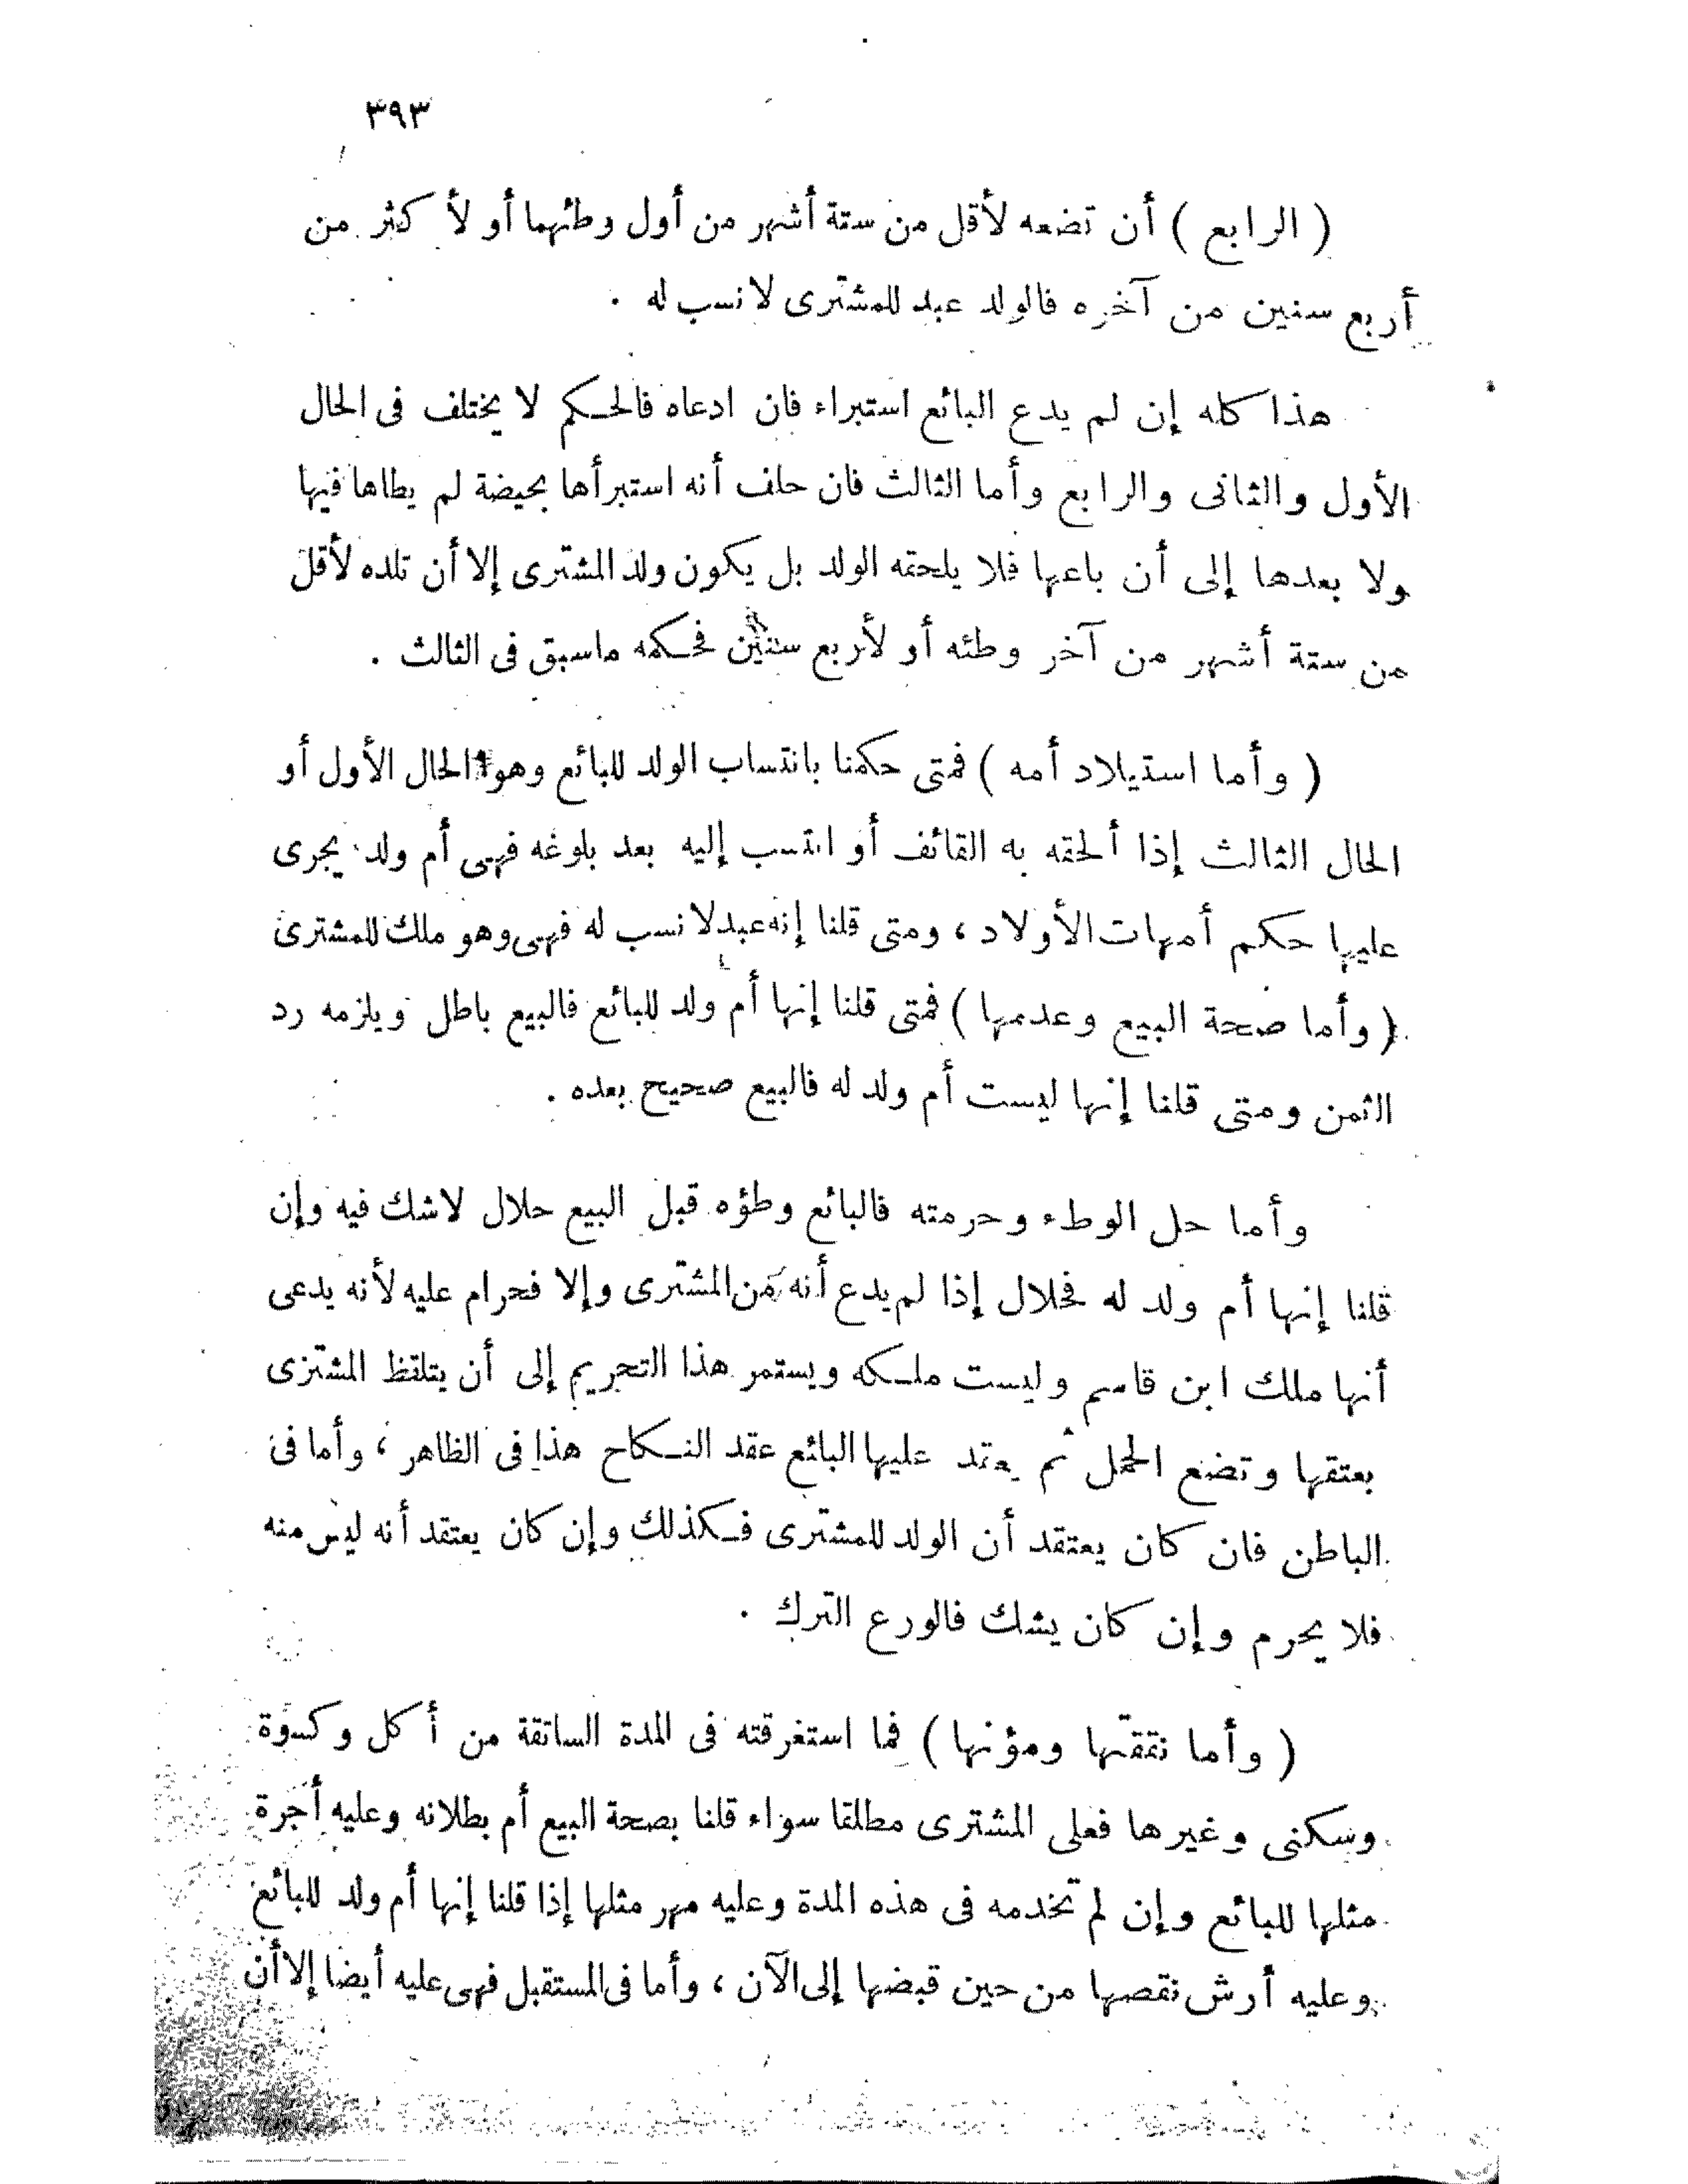 ٣٩٣
( الرابع ) أن تضعه لأقل من ستة أشهر من أول وطئهما أو لأكثر من
أربع سنين من آخره فالولد عبد للمشترى لا نسب له .
هذا كله إن لم يدع البائع استبراء فان ادعاه فالحكم لا يختلف فى الحال
الأول والثانى والرابع وأما الثالث فان حلف أنه استبرأها بحيضة لم يطاها فيها
ولا بعدها إلى أن باعها فلا يلحقه الولد بل يكون ولد المشترى إلا أن تلده لأقل
من ستة أشهر من آخر وطئه أو لأربع سنين فحكمه ماسبق فى الثالث .
( وأما استيلاد أمه ) فمتى حكمنا بانتساب الولد للبائع وهو الحال الأول أو
الحال الثالث إذا ألحقه به القائف أو انتسب إليه بعد بلوغه فهى أم ولد يجرى
عليها حكم أمهات الأولاد ، ومتى قلنا إنه عبد لا نسب له فهى وهو ملك للمشترى
( وأما صحة البيع وعدمها ) فمتى قلنا إنها أم ولد للبائع فالبيع باطل ويلزمه رد
الثمن ومتى قلنا إنها ليست أم ولد له فالبيع صحيح بعده .
وأما حل الوطء وحرمته فالبائع وطؤه قبل البيع حلال لاشك فيه وإن
قلنا إنها أم ولد له فحلال إذا لم يدع أنه من المشترى وإلا فحرام عليه لأنه يدعى
أنها ملك ابن قاسم وليست ملكه ويستمر هذا التحريم إلى أن يتلفظ المشترى
بعتقها وتضع الحمل ثم يعقد عليها البائع عقد النكاح هذا فى الظاهر ، وأما فى
الباطن فان كان يعتقد أن الولد للمشترى فكذلك وإن كان يعتقد أنه ليس منه
فلا يحرم وإن كان يشك فالورع الترك .
( وأما نفقتها ومؤنها ) فما استغرقته فى المدة السابقة من أكل وكسوة
وسكنى وغيرها فعلى المشترى مطلقا سواء قلنا بصحة البيع أم بطلانه وعليه أجرة
مثلها للبائع وإن لم تخدمه فى هذه المدة وعليه مهر مثلها إذا قلنا إنها أم ولد للبائع
وعليه أرش نقصها من حين قبضها إلى الآن ، وأما فى المستقبل فهى عليه أيضا إلا أن